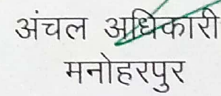 अंचल अधिकारी
मनोहरपुर